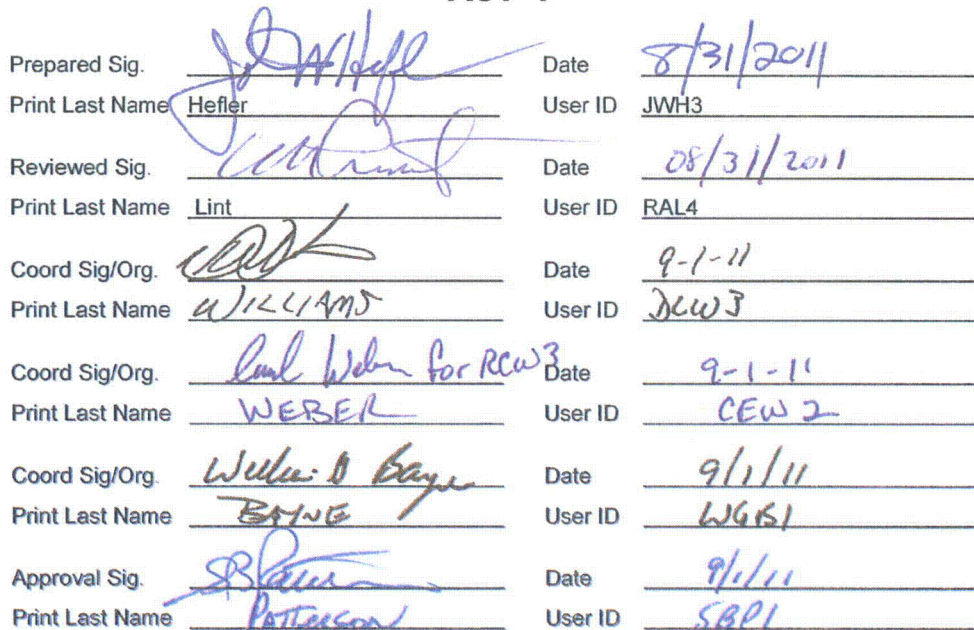 Prepared Sig. Date 8/31/2011
Print Last Name Hefler User ID JWH3
Reviewed Sig. Date 08/31/2011
Print Last Name Lint User ID RAL4
Coord Sig/Org. Date 9-1-11
Print Last Name WILLIAMS User ID DLW3
Coord Sig/Org. Carl Weber for RCW3 Date 9-1-11
Print Last Name WEBER User ID CEW2
Coord Sig/Org. Date 9/1/11
Print Last Name BAYNE User ID WGB1
Approval Sig. Date 9/1/11
Print Last Name PATTERSON User ID SBP1